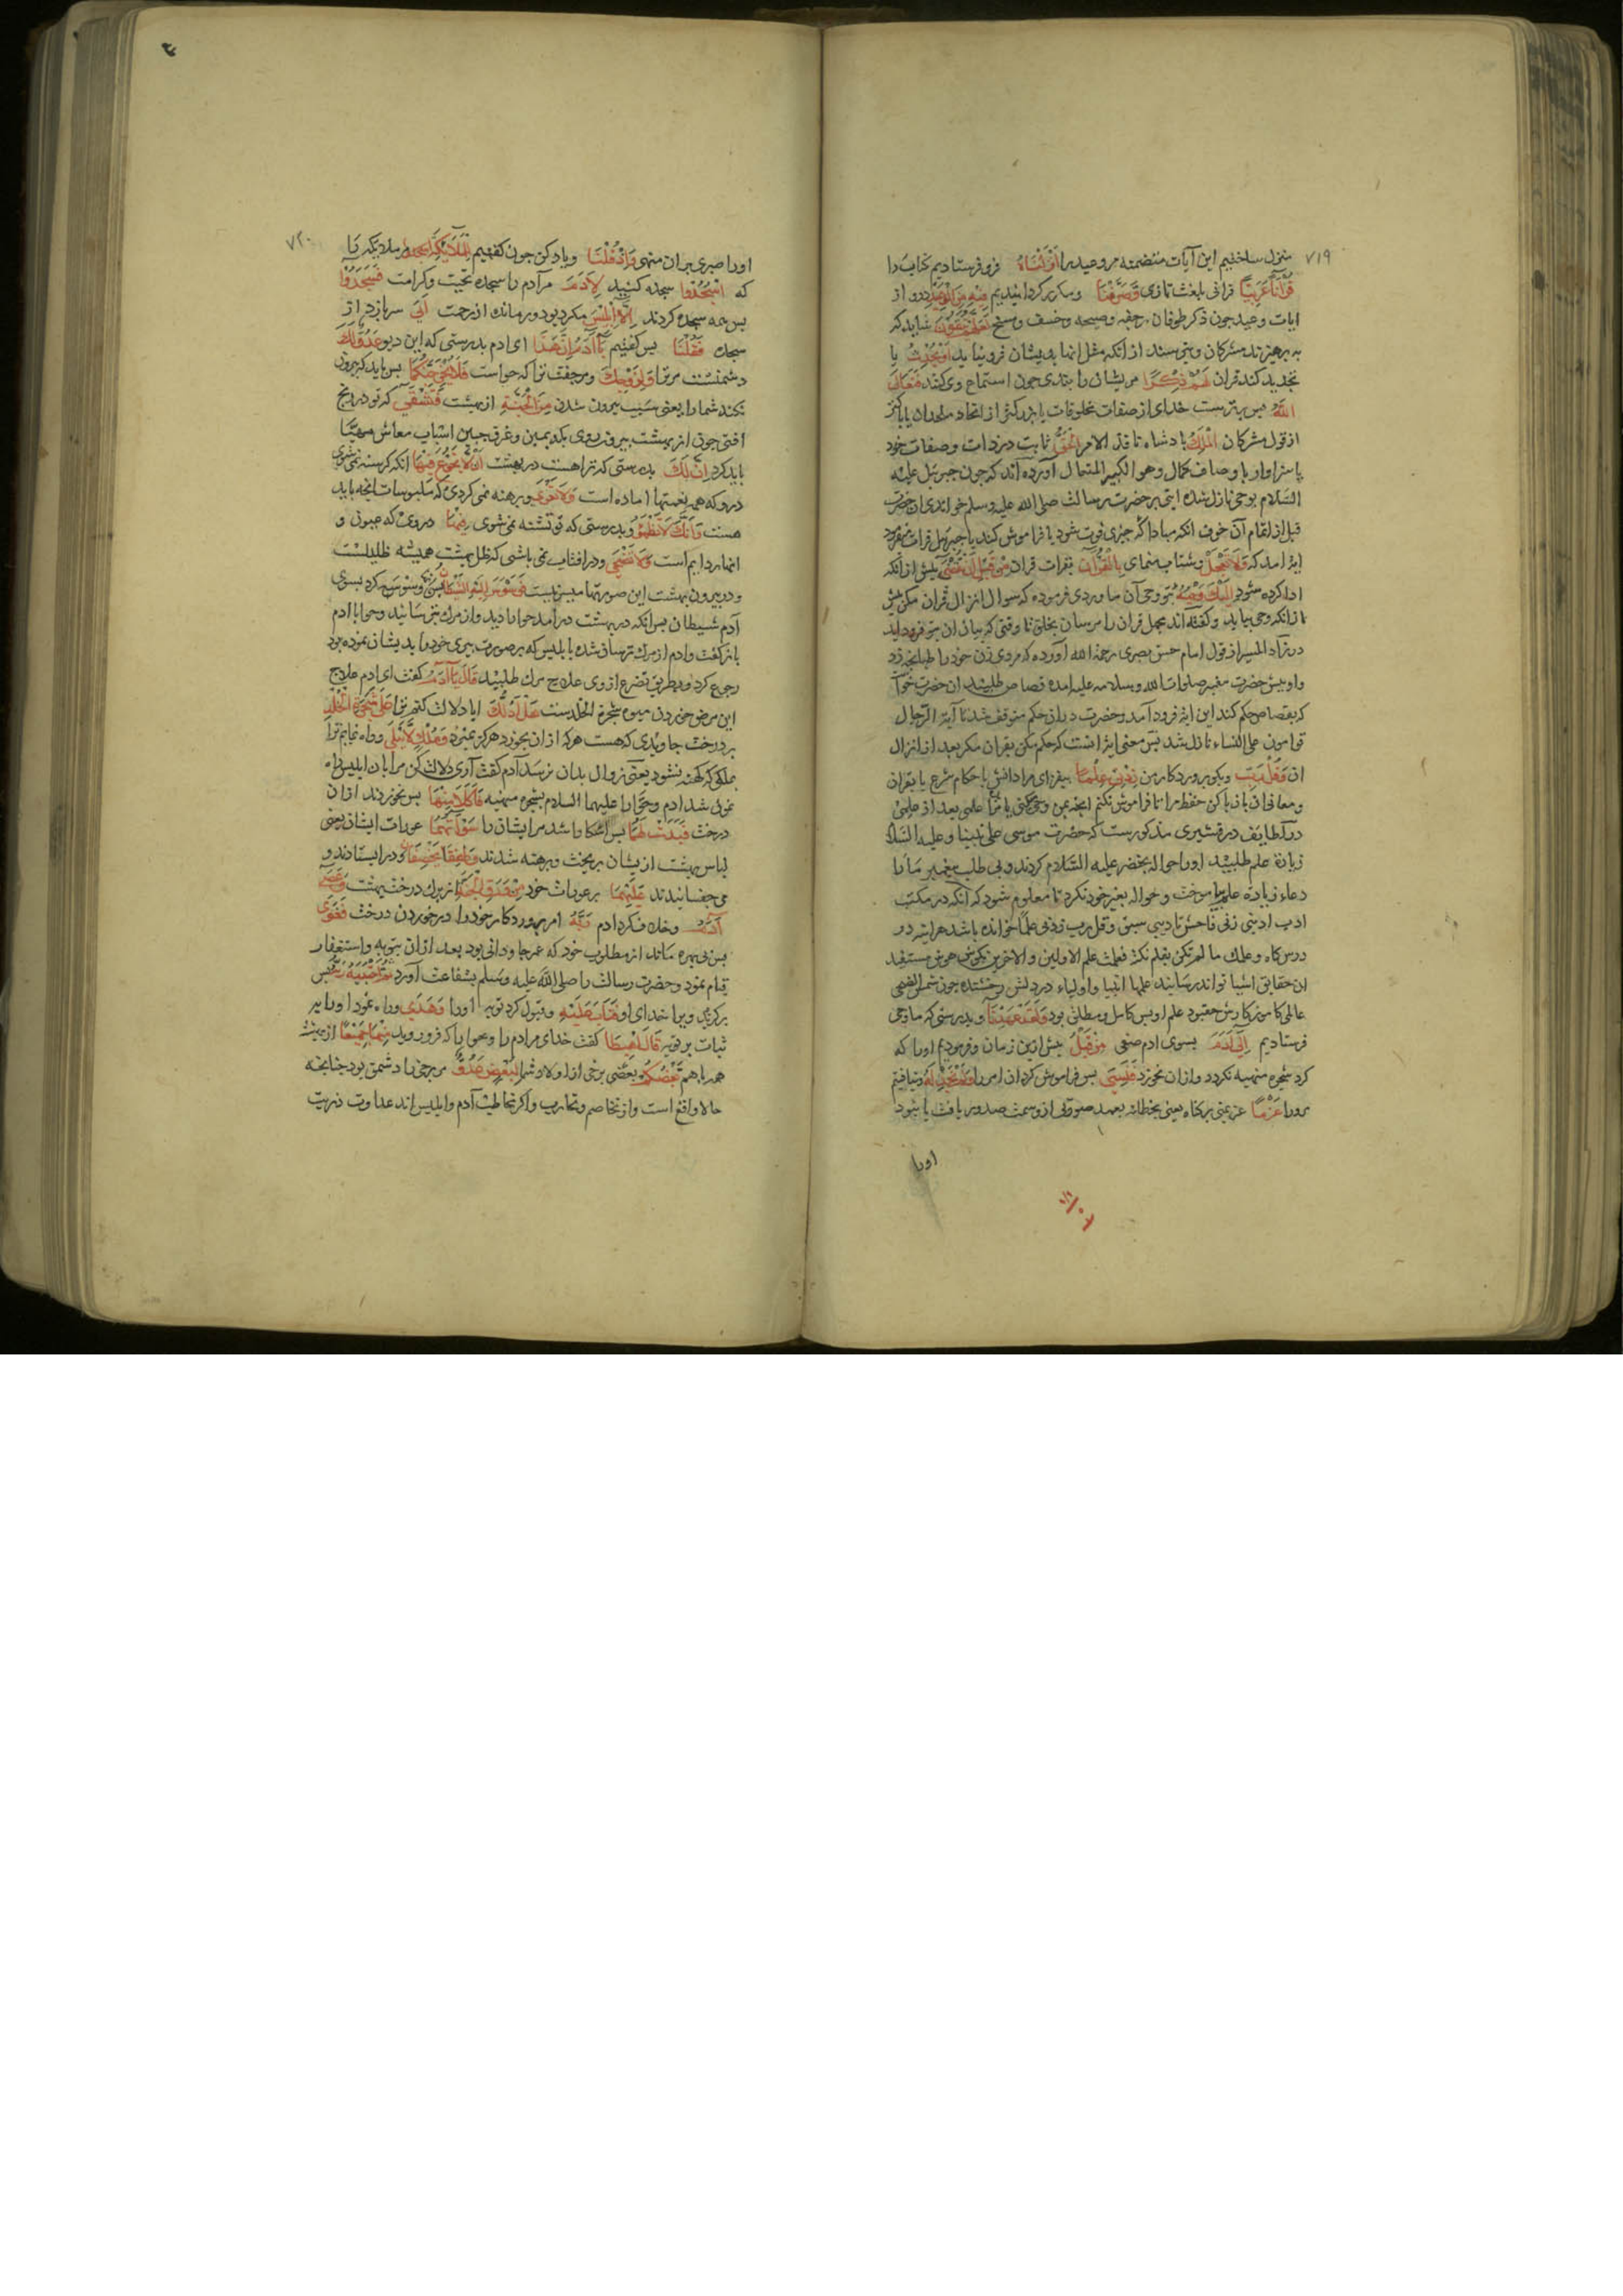 ۷۱۹
منزل ساختیم این آیات متضمنه مر وعید را اَنْزَلْنَاهُ فرو فرستادیم کتاب را
قُرْآنًا عَرَبِیًّا قرآنی بلغت تازی وَصَرَّفْنَا و مکرر کردانیدیم فِیهِ مِنَ الْوَعِیدِ درو از
ایات وعید جون ذکر طوفان و رجفه و صیحه و خسف و مسخ لَعَلَّهُمْ یَتَّقُونَ شاید که
به برهیزند مشرکان و بترسند از آنکه مثل انها بدیشان فرو نیاید اَوْ یُحْدِثُ یا
تجدید کند قران لَهُمْ ذِکْرًا مریشان را بندی جون استماع وی کنند فَتَعَالَی
اللَّهُ بس برترست خدای از صفات مخلوقات یا بزرکتر از الحاد ملحدان یا پاکتر
از قول مشرکان الْمَلِکُ بادشاه نافذ الامر الْحَقُّ ثابت در ذات و صفات خود
یا سزاوار با وصاف کمال و هو الکبیر المتعال آورده اند که جون جبرئیل علیه
السلام بوحی نازل شده ایتی بر حضرت رسالت صلی الله علیه وسلم خواندی ان حضرت
قبل از اتمام آن خوف انکه مبادا که جیزی فوت شود یا فراموش کند با جبرئیل قرات میفرمود
ایه امد که وَلَا تَعْجَلْ و شتاب منمای بِالْقُرْآنِ بقرات قران مِنْ قَبْلِ اَنْ یُقْضَی بیش از آنکه
ادا کرده شود اِلَیْکَ وَحْیُهُ بتو وحی آن ماوردی فرموده که سوال انزال قران مکن بیش
از انکه وحی بیاید و کفته اند مجمل قران را مرسان بخلق تا وقتی که بیان ان بتو فرود اید
در زاد المسیر از قول امام حسن بصری رحمة الله آورده که مردی زن خود را طبانجه زد
و او بیش حضرت مغبر صلوات الله وسلامه علیه امده قصاص طلبید ان حضرت خواست
که بقصاص حکم کند این ایة فرود آمد و حضرت دران حکم متوقف شد تا آیة الرجال
قوامون علی النساء نازل شد بس معنی ایة انست که حکم مکن بقران مکر بعد از انزال
ان وَقُلْ رَبِّ و بکو برورد کار من زِدْنِی عِلْمًا بیفزای مرا دانش باحکام شرع یا بقران
و معانی ان یا زیاد کن حفظ مرا تا فراموش نکنم انجه بمن وحی میکنی یا مرا علمی بعد از علمی
در لطایف قشیری مذکورست که حضرت موسی علی نبینا و علیه السلام
زیادة علم طلبید او را حواله بخضر علیه السلام کردند و بی طلب پیغمبر ما را
دعاء زیادة علم بیاموخت و حواله بغیر خود نکرد تا معلوم شود که انکه در مکتب
ادب ادبنی ربی فاحسن تادیبی سبق و قل رب زدنی علما خوانده باشد هراینه در
درسکاه و علمک ما لم تکن تعلم نکته فعلمت علم الاولین والاخرین بکوش هوش مستفید
ان حقایق اشیا تواند رسانید علمها انبیا و اولیاء در دلش رخشنده جون شمس الضحی
عالمی کاموزکارش حق بود علم او بس کامل و مطلق بود وَلَقَدْ عَهِدْنَا و بدرستی که ما وحی
فرستادیم اِلَی آدَمَ بسوی ادم صفی مِنْ قَبْلُ بیش ازین زمان و فرمودیم او را که
کرد شجره منهیه نکردد و ازان نخورد فَنَسِیَ بس فراموش کرد ان امر را وَلَمْ نَجِدْ لَهُ و نیافتیم
مرورا عَزْمًا عزیمتی بر کناه یعنی بخطا نه بعمد صورتی ازو سمت صدور یافت یا نبود
اورا
۷۲۰
اورا صبری بران منهی وَاِذْ قُلْنَا و یاد کن جون کفتیم لِلْمَلَائِکَةِ اسْجُدُوا مر ملائکه را
که اسْجُدُوا سجده کنید لِآدَمَ مر آدم را سجده تحیت و کرامت فَسَجَدُوا
بس همه سجده کردند اِلَّا اِبْلِیسَ مکر دیو دور مانده از رحمت اَبَی سر باز زد از
سجده فَقُلْنَا بس کفتیم یَا آدَمُ اِنَّ هَذَا ای ادم بدرستی که این دیو عَدُوٌّ لَکَ
دشمنست مر ترا وَلِزَوْجِکَ و مر جفت ترا که حواست فَلَا یُخْرِجَنَّکُمَا بس باید که بیرون
نکند شما را یعنی سبب بیرون شدن مِنَ الْجَنَّةِ از بهشت فَتَشْقَی که تو در رنج
افتی جون از بهشت بیرون روی بکد یمین و عرق جبین اسباب معاش مهیا
باید کرد اِنَّ لَکَ بدرستی که ترا هست در بهشت اَلَّا تَجُوعَ فِیهَا انکه کرسنه نمی شوی
درو که همه نعمتها اماده است وَلَا تَعْرَی و برهنه نمی کردی که ملبوسات انجه باید
هست وَاَنَّکَ لَا تَظْمَؤُ و بدرستی که تو تشنه نمی شوی فِیهَا دروی که عیون و
انهار دایم است وَلَا تَضْحَی و در افتاب نمی باشی که ظل بهشت همیشه ظلیلست
و در بیرون بهشت این صورتها میسر نیست فَوَسْوَسَ اِلَیْهِ الشَّیْطَانُ بس وسوسه کرد بسوی
آدم شیطان بس انکه در بهشت در آمد حوا را دید و از مرک بترسانید و حوا با ادم
باز کفت و ادم از مرک ترسان شده با بلیس که بر صورت پیری خود را بدیشان نموده بود
رجوع کرد و بطریق تضرع از وی علاج مرک طلبید قَالَ یَا آدَمُ کفت ای ادم علاج
این مرض خوردن میوه شجرة الخلدست هَلْ اَدُلُّکَ ایا دلالت کنم ترا عَلَی شَجَرَةِ الْخُلْدِ
بر درخت جاویدی که هست هر که ازان بخورد هرکز نمیرد وَمُلْکٍ لَا یَبْلَی و راه نمایم ترا
بملکی که کهنه نشود یعنی زوال بدان نرسد آدم کفت آری دلالت کن مرا بان ابلیس راه
نمون شد ادم و حوا را علیهما السلام بشجره منهیه فَاَکَلَا مِنْهَا بس بخوردند ازان
درخت فَبَدَتْ لَهُمَا بس اشکارا شد مر ایشان را سَوْآتُهُمَا عورات ایشان یعنی
لباس بهشت از یشان بریخت و برهنه شدند وَطَفِقَا یَخْصِفَانِ و در ایستادند و
می جفسانیدند عَلَیْهِمَا بر عورات خود مِنْ وَرَقِ الْجَنَّةِ از برک درخت بهشت وَعَصَی
آدَمُ و خلاف کرد ادم رَبَّهُ امر پروردکار خود را در خوردن درخت فَغَوَی
بس بی بهره ماند از مطلوب خود که عمر جاودانی بود بعد ازان بتوبه و استغفار
قیام نمود و حضرت رسالت را صلی الله علیه وسلم بشفاعت آورد ثُمَّ اجْتَبَیهُ رَبُّهُ بس
برکزید ویرا خدای او فَتَابَ عَلَیْهِ و قبول کرد توبه اورا وَهَدَی و راه نمود اورا بر
ثبات بر توبه قَالَ اهْبِطَا کفت خدای مر ادم را و حوا را که فرو روید مِنْهَا جَمِیعًا از بهشت
همه باهم بَعْضُکُمْ بعضی برخی از اولاد شما لِبَعْضٍ عَدُوٌّ مر برخی را دشمن بود جنانجه
حالا واقع است و از تخاصم و تحارب و اکر مخاطب آدم و ابلیس اند عداوت ذریت